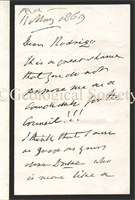 11 May 1869
Dear Rodrigo
This is a great shame
that you do not
propose me as a
Candidate for the
Council!!!
I think that I am
as good as your
who
is more like a